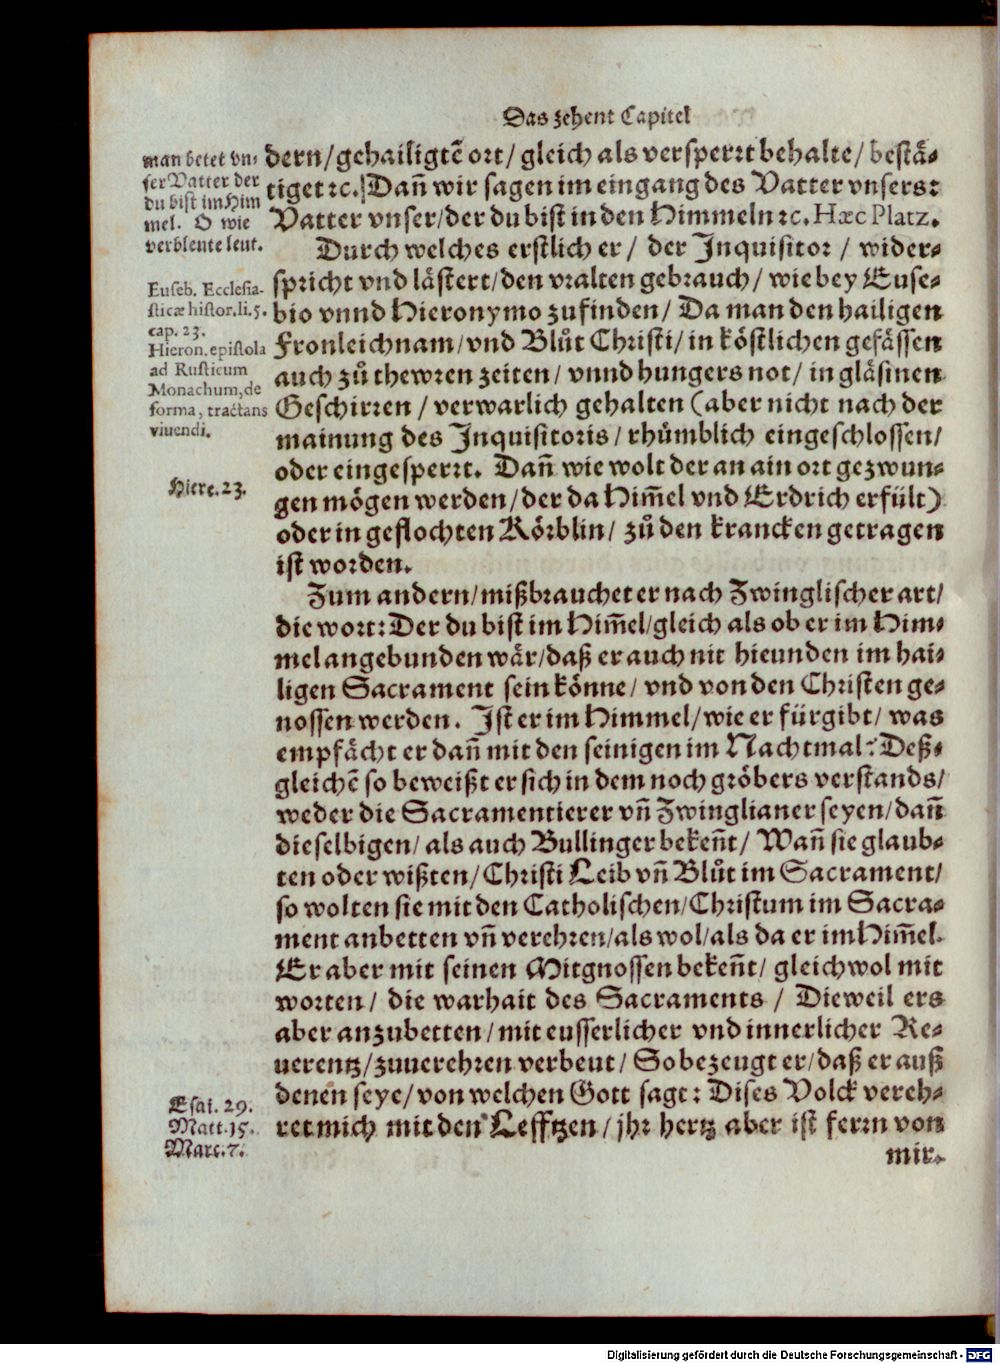 Das zehent Capitel
man betet vn⸗
ser Vatter der
du bist im Him
mel. O wie
verblente leut.
Euseb. Ecclesia-
sticæ histor. li. 5.
cap. 23.
Hieron. epistola
ad Rusticum
Monachum, de
forma, tractans
viuendi.
Hiere. 23.
Esai. 29.
Matt. 15.
Marc. 7.
dern/ gehailigtē ort/ gleich als versperrt behalte/ bestä⸗
tiget ꝛc. Dañ wir sagen im eingang des Vatter vnsers:
Vatter vnser/ der du bist in den Himmeln ꝛc. Hæc Platz.
Durch welches erstlich er/ der Inquisitor/ wider⸗
spricht vnd lästert/ den vralten gebrauch/ wie bey Euse⸗
bio vnnd Hieronymo zůfinden/ Da man den hailigen
Fronleichnam/ vnd Blůt Christi/ in köstlichen gefässen
auch zů thewren zeiten/ vnnd hungers not/ in gläsinen
Geschirren/ verwarlich gehalten (aber nicht nach der
mainung des Inquisitoris/ rhůmblich eingeschlossen/
oder eingesperrt. Dañ wie wolt der an ain ort gezwun⸗
gen mögen werden/ der da Him̃el vnd Erdrich erfült)
oder in geflochten Körblin/ zů den krancken getragen
ist worden.
Zum andern/ mißbrauchet er nach Zwinglischer art/
die wort: Der du bist im Him̃el/ gleich als ob er im Him⸗
mel angebunden wär/ daß er auch nit hieunden im hai⸗
ligen Sacrament sein könne/ vnd von den Christen ge⸗
nossen werden. Ist er im Himmel/ wie er fürgibt/ was
empfächt er dañ mit den seinigen im Nachtmal? Deß⸗
gleichē so beweißt er sich in dem noch gröbers verstands/
weder die Sacramentierer vñ Zwinglianer seyen/ dañ
dieselbigen/ als auch Bullinger bekeñt/ Wañ sie glaub⸗
ten oder wißten/ Christi Leib vñ Blůt im Sacrament/
so wolten sie mit den Catholischen/ Christum im Sacra⸗
ment anbetten vñ verehren/ als wol/ als da er im Him̃el.
Er aber mit seinen Mitgnossen bekeñt/ gleichwol mit
worten/ die warhait des Sacraments/ Dieweil ers
aber anzubetten/ mit eusserlicher vnd innerlicher Re⸗
uerentz/ zuuerehren verbeut/ So bezeugt er/ daß er auß
denen seye/ von welchen Gott sagt: Dises Volck vereh⸗
ret mich mit den Lefftzen/ jhr hertz aber ist ferrn von
mir.
Digitalisierung gefördert durch die Deutsche Forschungsgemeinschaft - DFG